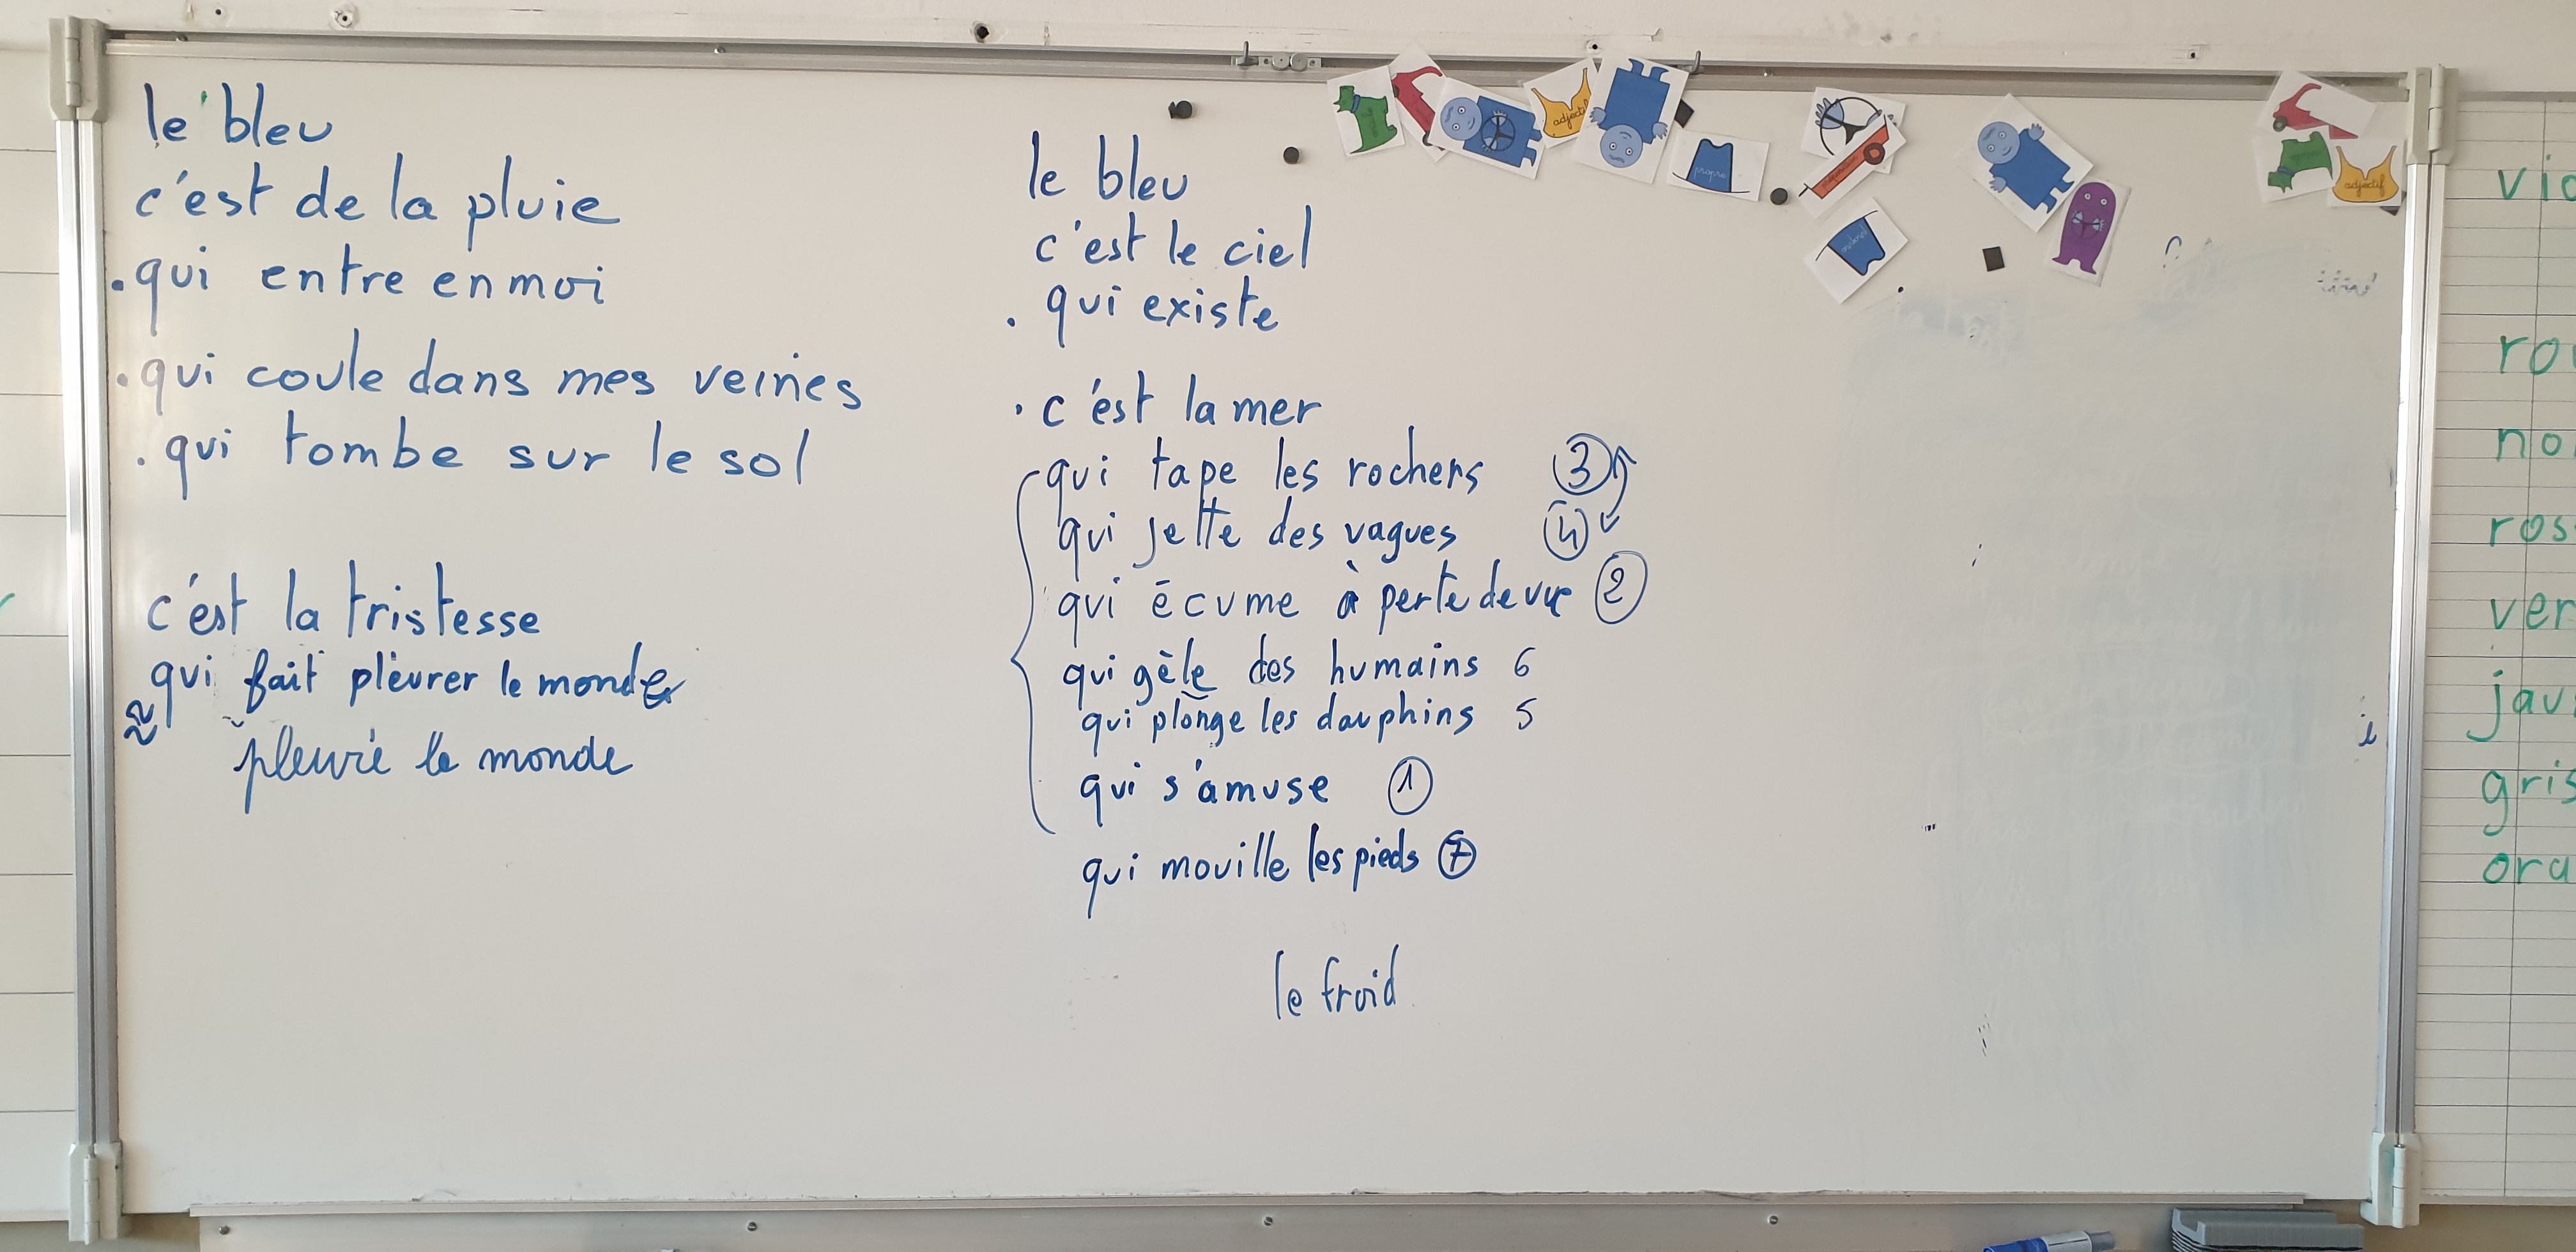 le bleu
c'est de la pluie
. qui entre en moi
. qui coule dans mes veines
. qui tombe sur le sol
c'est la tristesse
qui fait pleurer le monde
pleure le monde
le bleu
c'est le ciel
. qui existe
. c'est la mer
qui tape les rochers 3
qui jette des vagues 4
qui écume à perte de vue 2
qui gèle des humains 6
qui plonge les dauphins 5
qui s'amuse 1
qui mouille les pieds 7
le froid
adjectif
propre
adjectif
ros
ver
gris